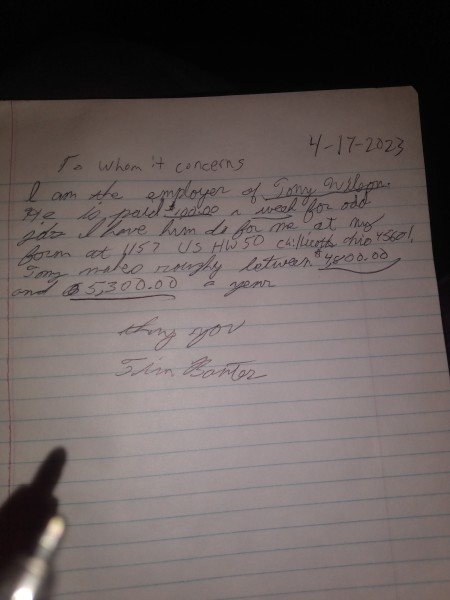 4-17-2023
To whom it concerns
I am the employer of Tony Wilson.
He is paid $100.00 a week for odd
jobs I have him do for me at my
farm at 1157 US HW 50 ohio 45601,
Tony makes roughly between $4,800.00
and $5,300.00 a year
thang you